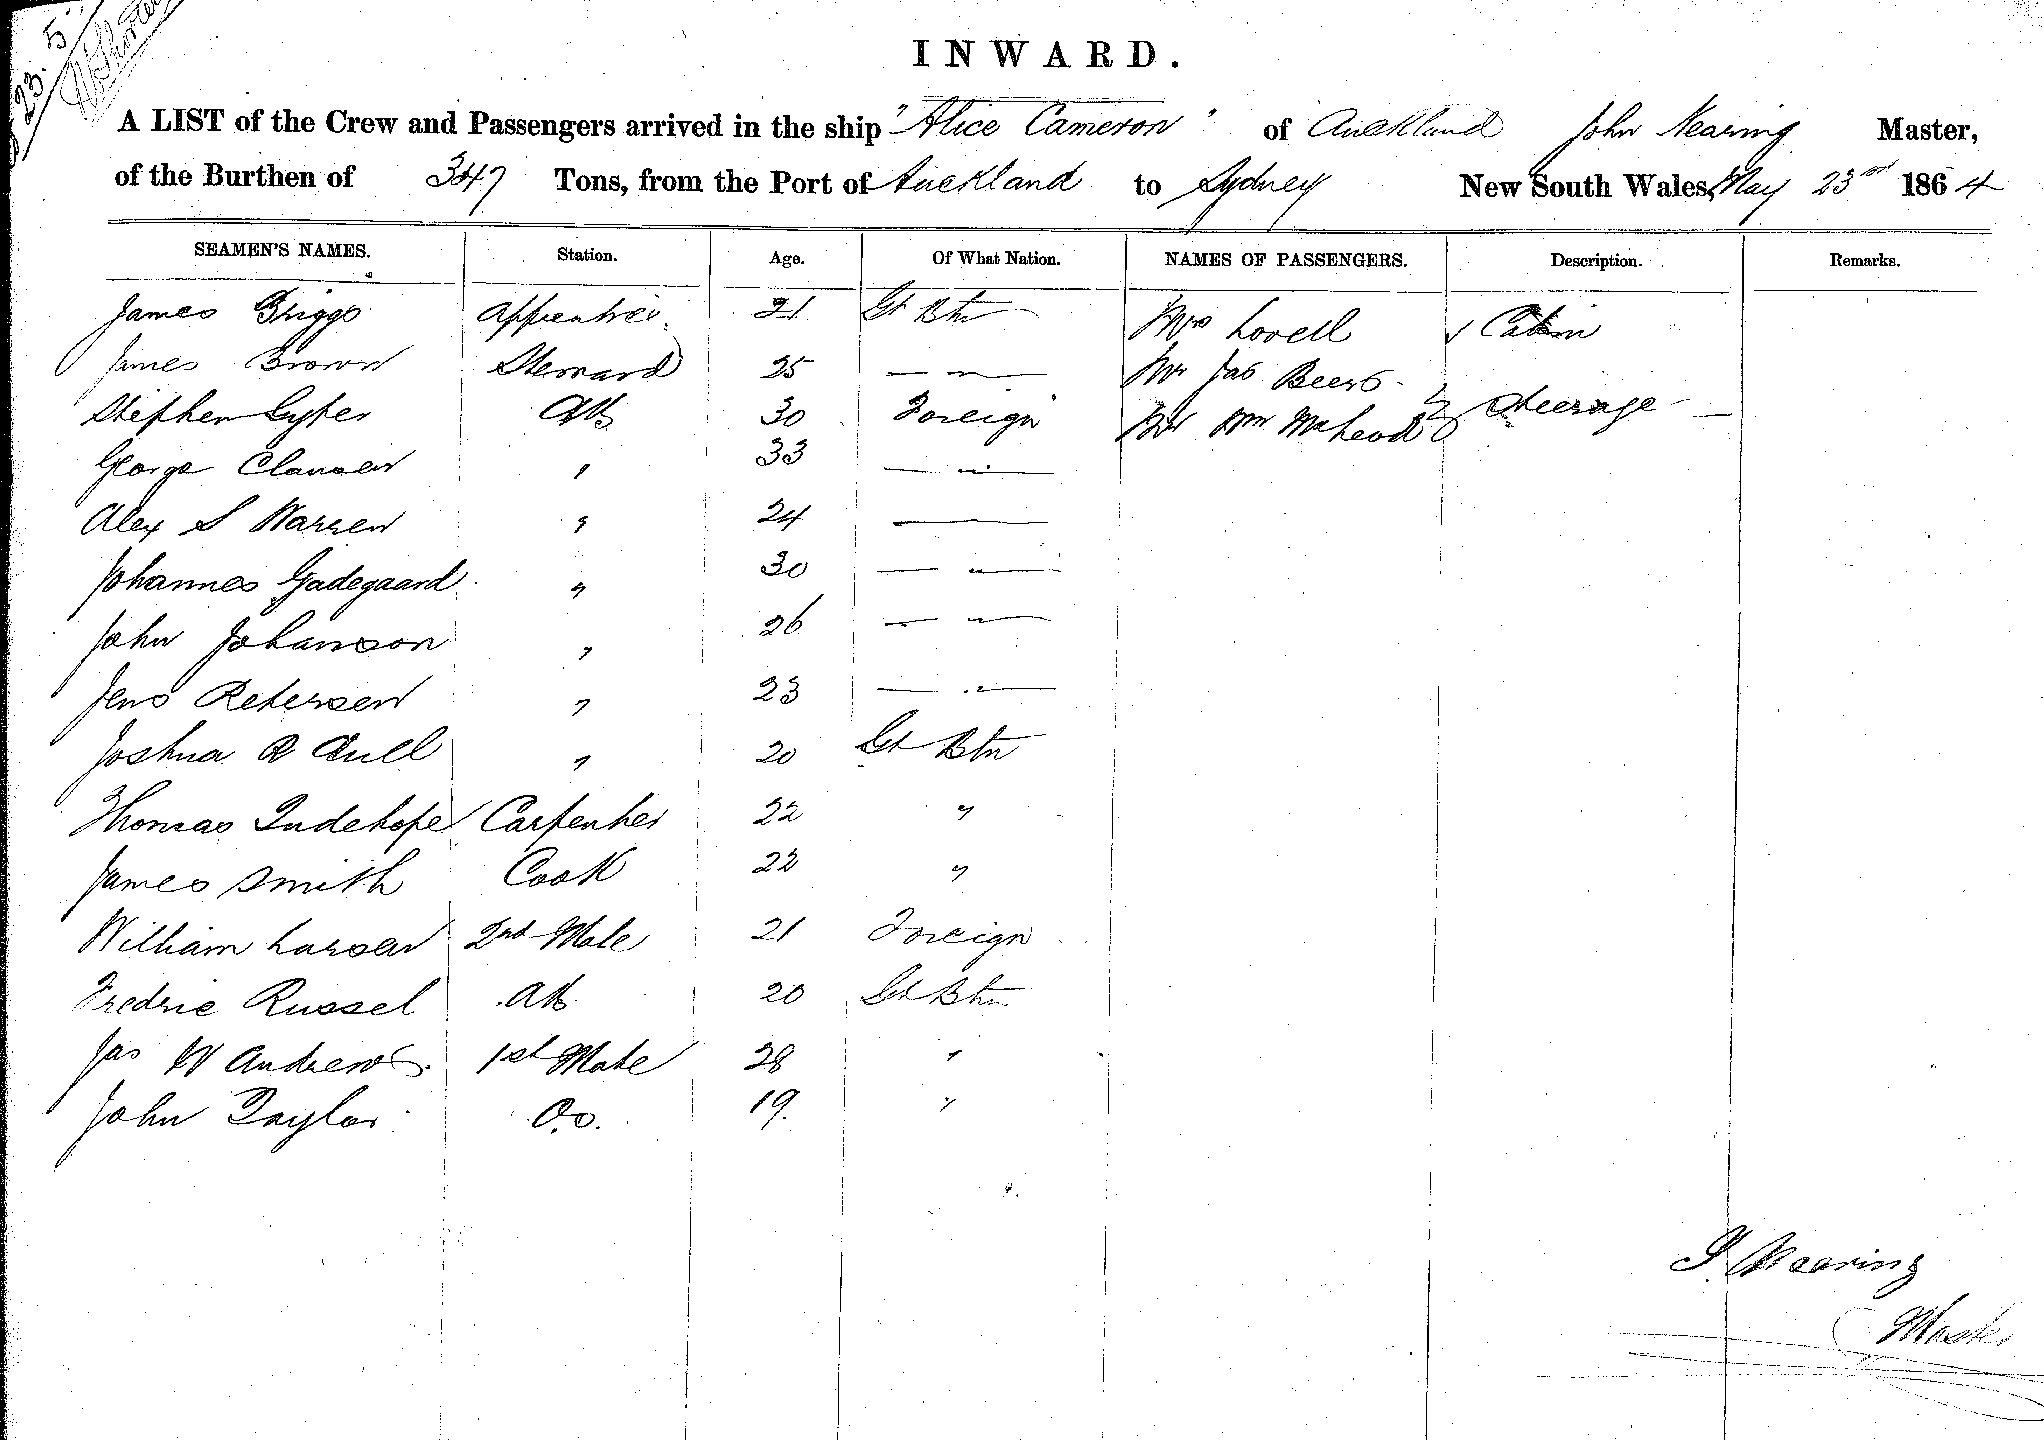 23. 5
INWARD.
A LIST of the Crew and Passengers arrived in the ship "Alice Cameron" of Auckland John Nearing Master,
of the Burthen of 347 Tons, from the Port of Auckland to Sydney New South Wales, May 23rd 1864
SEAMEN'S NAMES. Station. Age. Of What Nation. NAMES OF PASSENGERS. Description. Remarks.
James Briggs Apprentice 21 Gt Btn Mrs Lovell Cabin
James Brown Steward 25 — " — Mr Jas Beers
Stephen AB 30 Foreign Mr Wm McLeod Steerage
George Clausen " 33 — " —
Alex S Warren " 24 ——
Johannes Gadegaard " 30 — " —
John Johanson " 26 — " —
Jens Petersen " 23 — " —
Joshua R Cull " 20 Gt Btn
Thomas Carpenter 22 "
James Smith Cook 22 "
William Larsen 2nd Mate 21 Foreign
Fredric Russel AB 20 Gt Btn
Jas W Andrews 1st Mate 28 "
John Taylor O.S. 19. "
J. Nearing
Master